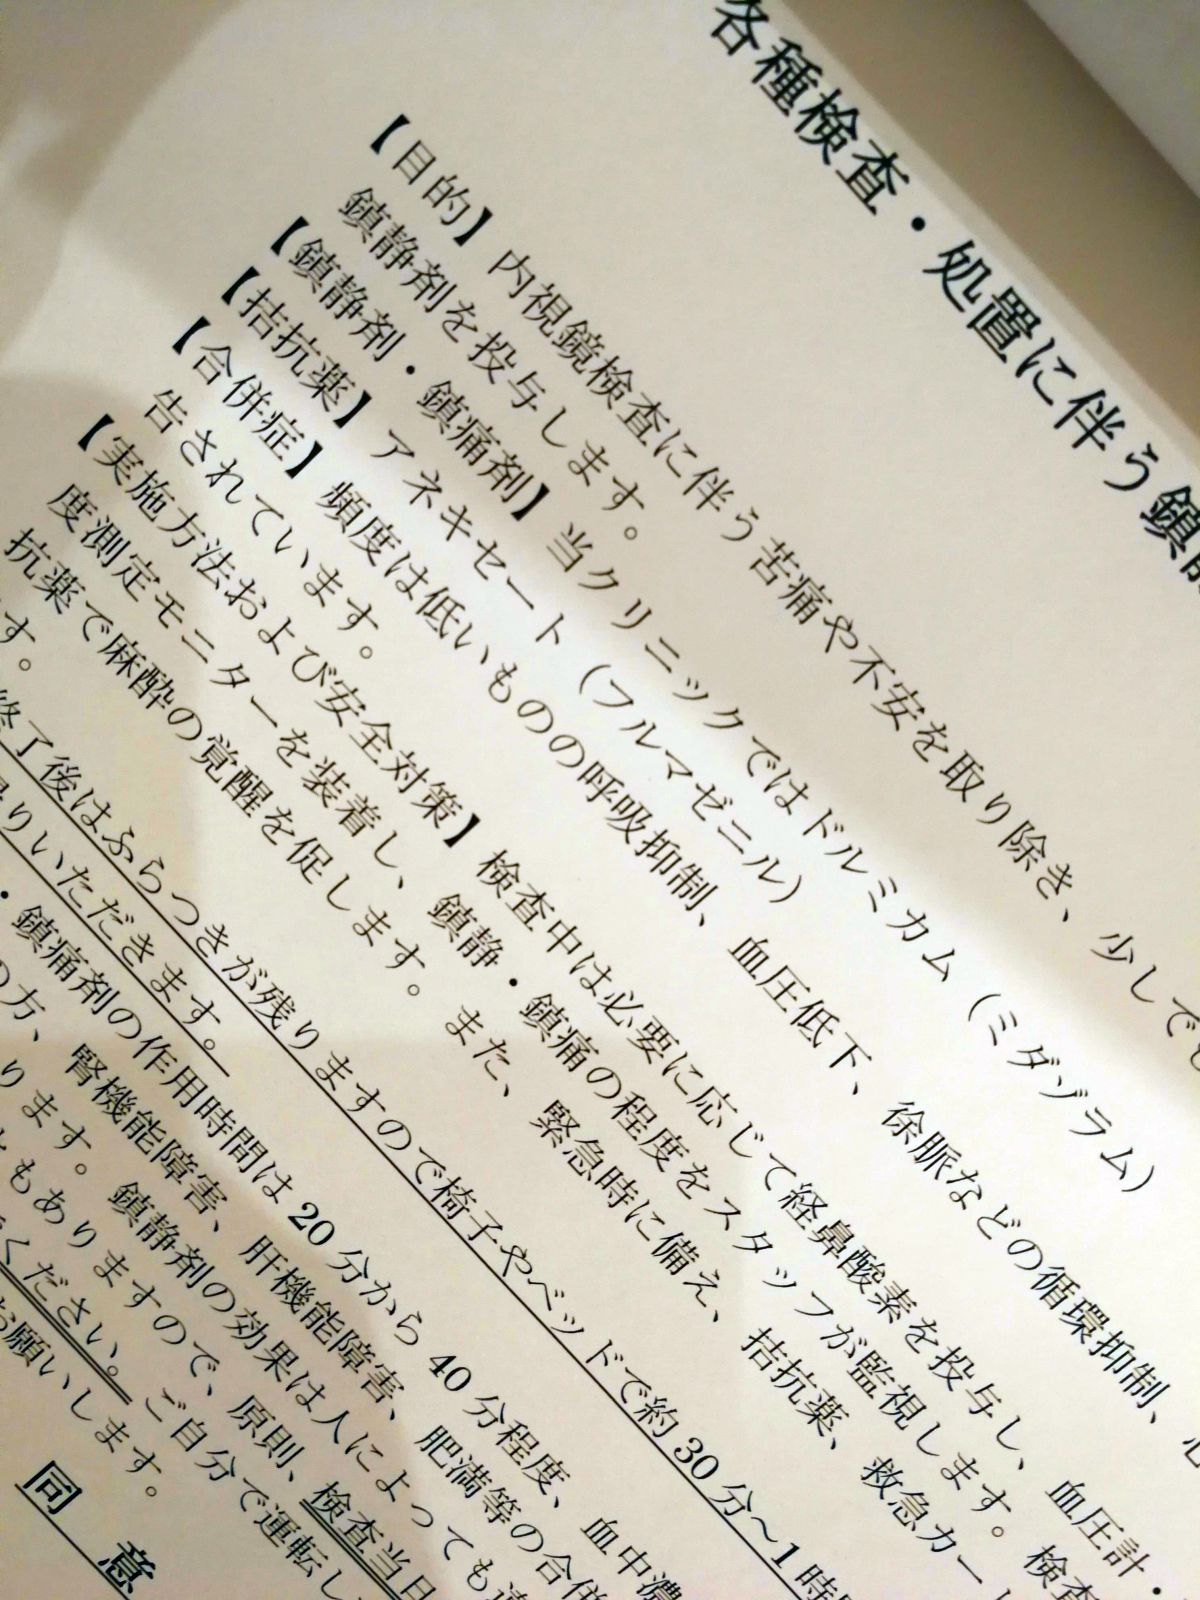 各種検査・処置に伴う鎮
【目的】内視鏡検査に伴う苦痛や不安を取り除き、少しでも
鎮静剤を投与します。
【鎮静剤・鎮痛剤】当クリニックではドルミカム（ミダゾラム）
【拮抗薬】アネキセート（フルマゼニル）
【合併症】頻度は低いものの呼吸抑制、血圧低下、徐脈などの循環抑制、心
告されています。
【実施方法および安全対策】検査中は必要に応じて経鼻酸素を投与し、血圧計・
度測定モニターを装着し、鎮静・鎮痛の程度をスタッフが監視します。検査
抗薬で麻酔の覚醒を促します。また、緊急時に備え、拮抗薬、救急カー
す。
終了後はふらつきが残りますので椅子やベッドで約30分～1時
帰りいただきます。
・鎮痛剤の作用時間は20分から40分程度、血中濃
の方、腎機能障害、肝機能障害、肥満等の合併
ります。鎮静剤の効果は人によっても違
ともありますので、原則、検査当日
ください。ご自分で運転し
お願いします。
同意